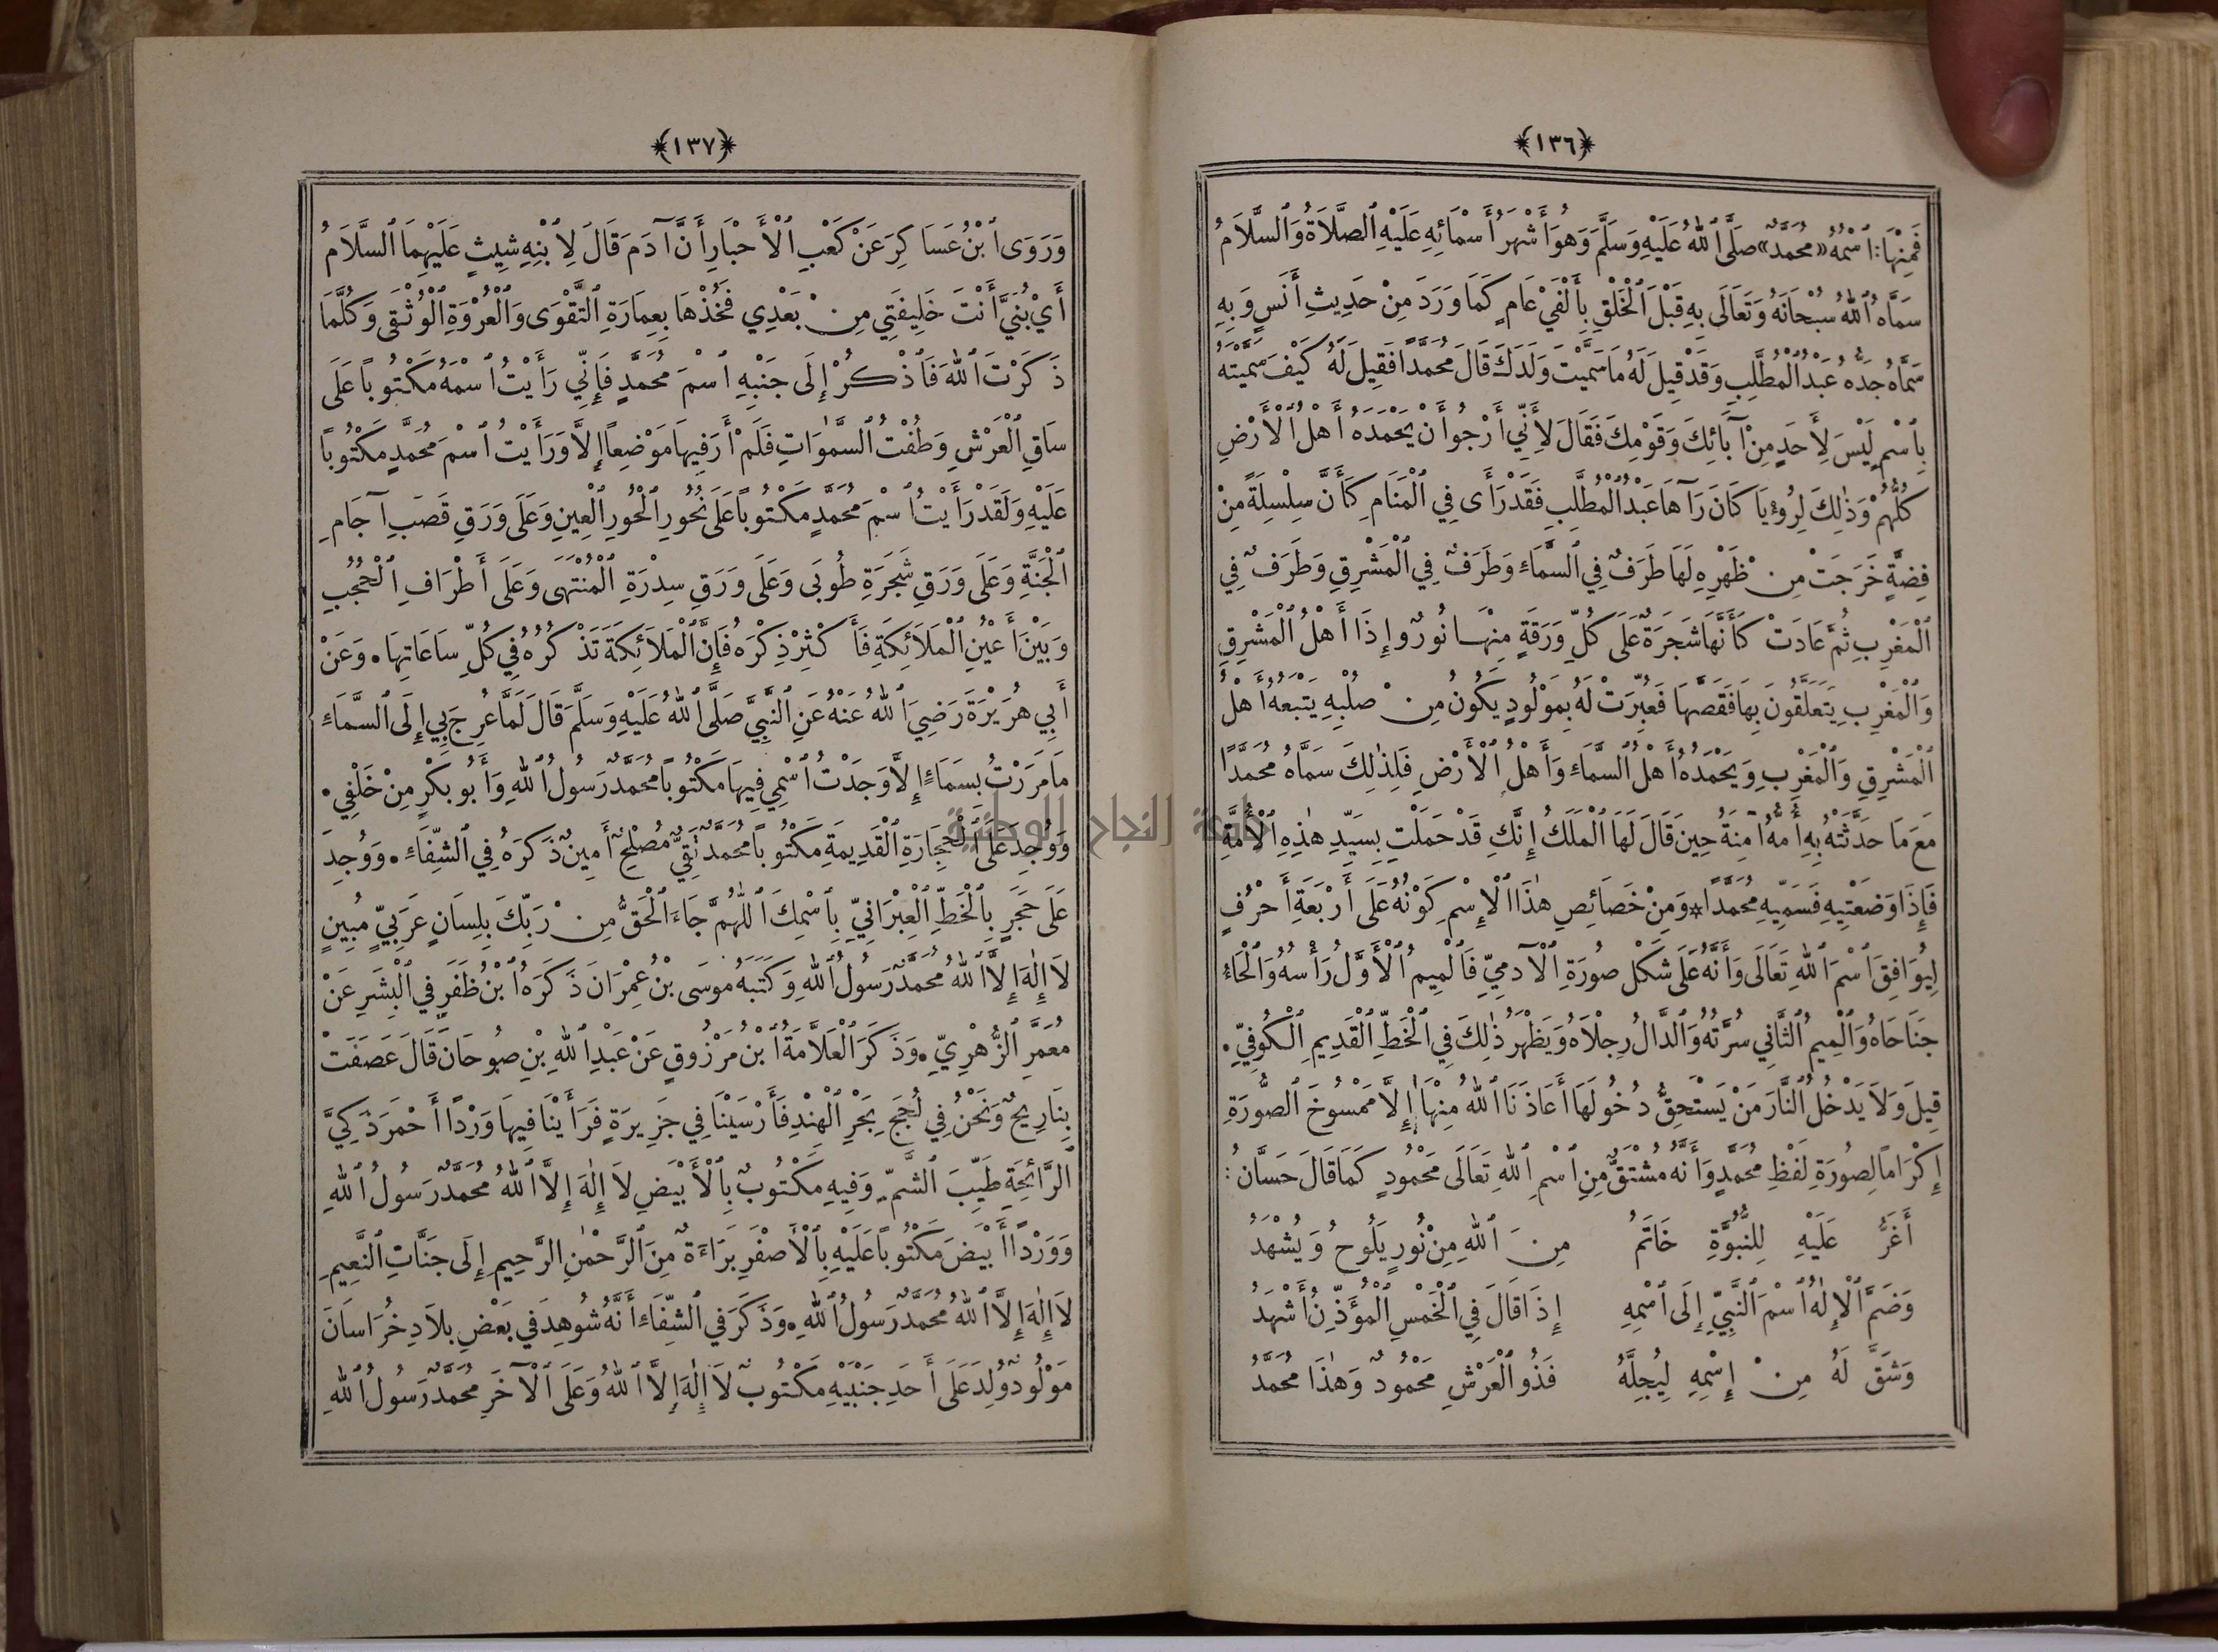 ﴿١٣٦﴾
فَمِنْهَا: ٱسْمُهُ «مُحَمَّدٌ» صَلَّى ٱللهُ عَلَيْهِ وَسَلَّمَ وَهُوَ أَشْهَرُ أَسْمَائِهِ عَلَيْهِ ٱلصَّلَاةُ وَٱلسَّلَامُ
سَمَّاهُ ٱللهُ سُبْحَانَهُ وَتَعَالَى بِهِ قَبْلَ ٱلْخَلْقِ بِأَلْفَيْ عَامٍ كَمَا وَرَدَ مِنْ حَدِيثِ أَنَسٍ وَبِهِ
سَمَّاهُ جَدُّهُ عَبْدُ ٱلْمُطَّلِبِ وَقَدْ قِيلَ لَهُ مَا سَمَّيْتَ وَلَدَكَ قَالَ مُحَمَّدًا فَقِيلَ لَهُ كَيْفَ سَمَّيْتَهُ
بِٱسْمٍ لَيْسَ لِأَحَدٍ مِنْ آبَائِكَ وَقَوْمِكَ فَقَالَ لِأَنِّي أَرْجُو أَنْ يَحْمَدَهُ أَهْلُ ٱلْأَرْضِ
كُلُّهُمْ وَذٰلِكَ لِرُؤْيَا كَانَ رَآهَا عَبْدُ ٱلْمُطَّلِبِ فَقَدْ رَأَى فِي ٱلْمَنَامِ كَأَنَّ سِلْسِلَةً مِنْ
فِضَّةٍ خَرَجَتْ مِنْ ظَهْرِهِ لَهَا طَرَفٌ فِي ٱلسَّمَاءِ وَطَرَفٌ فِي ٱلْمَشْرِقِ وَطَرَفٌ فِي
ٱلْمَغْرِبِ ثُمَّ عَادَتْ كَأَنَّهَا شَجَرَةٌ عَلَى كُلِّ وَرَقَةٍ مِنْهَا نُورٌ وَإِذَا أَهْلُ ٱلْمَشْرِقِ
وَٱلْمَغْرِبِ يَتَعَلَّقُونَ بِهَا فَقَصَّهَا فَعُبِّرَتْ لَهُ بِمَوْلُودٍ يَكُونُ مِنْ صُلْبِهِ يَتْبَعُهُ أَهْلُ
ٱلْمَشْرِقِ وَٱلْمَغْرِبِ وَيَحْمَدُهُ أَهْلُ ٱلسَّمَاءِ وَأَهْلُ ٱلْأَرْضِ فَلِذٰلِكَ سَمَّاهُ مُحَمَّدًا
مَعَ مَا حَدَّثَتْهُ بِهِ أُمُّهُ آمِنَةُ حِينَ قَالَ لَهَا ٱلْمَلَكُ إِنَّكِ قَدْ حَمَلْتِ بِسَيِّدِ هٰذِهِ ٱلْأُمَّةِ
فَإِذَا وَضَعْتِيهِ فَسَمِّيهِ مُحَمَّدًا * وَمِنْ خَصَائِصِ هٰذَا ٱلْإِسْمِ كَوْنُهُ عَلَى أَرْبَعَةِ أَحْرُفٍ
لِيُوَافِقَ ٱسْمَ ٱللهِ تَعَالَى وَأَنَّهُ عَلَى شَكْلِ صُورَةِ ٱلْآدَمِيِّ فَٱلْمِيمُ ٱلْأَوَّلُ رَأْسُهُ وَٱلْحَاءُ
جَنَاحَاهُ وَٱلْمِيمُ ٱلثَّانِي سُرَّتُهُ وَٱلدَّالُ رِجْلَاهُ وَيَظْهَرُ ذٰلِكَ فِي ٱلْخَطِّ ٱلْقَدِيمِ ٱلْكُوفِيِّ.
قِيلَ وَلَا يَدْخُلُ ٱلنَّارَ مَنْ يَسْتَحِقُّ دُخُولَهَا أَعَاذَنَا ٱللهُ مِنْهَا إِلَّا مَمْسُوخَ ٱلصُّورَةِ
إِكْرَامًا لِصُورَةِ لَفْظِ مُحَمَّدٍ وَأَنَّهُ مُشْتَقٌّ مِنِ ٱسْمِ ٱللهِ تَعَالَى مَحْمُودٍ كَمَا قَالَ حَسَّانُ:
أَغَرُّ عَلَيْهِ لِلنُّبُوَّةِ خَاتَمٌ مِنَ ٱللهِ مِنْ نُورٍ يَلُوحُ وَيُشْهَدُ
وَضَمَّ ٱلْإِلٰهُ ٱسْمَ ٱلنَّبِيِّ إِلَى ٱسْمِهِ إِذَا قَالَ فِي ٱلْخَمْسِ ٱلْمُؤَذِّنُ أَشْهَدُ
وَشَقَّ لَهُ مِنْ إِسْمِهِ لِيُجِلَّهُ فَذُو ٱلْعَرْشِ مَحْمُودٌ وَهٰذَا مُحَمَّدُ
﴿١٣٧﴾
وَرَوَى ٱبْنُ عَسَاكِرَ عَنْ كَعْبِ ٱلْأَحْبَارِ أَنَّ آدَمَ قَالَ لِٱبْنِهِ شِيثٍ عَلَيْهِمَا ٱلسَّلَامُ
أَيْ بُنَيَّ أَنْتَ خَلِيفَتِي مِنْ بَعْدِي فَخُذْهَا بِعِمَارَةِ ٱلتَّقْوَى وَٱلْعُرْوَةِ ٱلْوُثْقَى وَكُلَّمَا
ذَكَرْتَ ٱللهَ فَٱذْكُرْ إِلَى جَنْبِهِ ٱسْمَ مُحَمَّدٍ فَإِنِّي رَأَيْتُ ٱسْمَهُ مَكْتُوبًا عَلَى
سَاقِ ٱلْعَرْشِ وَطُفْتُ ٱلسَّمٰوَاتِ فَلَمْ أَرَ فِيهَا مَوْضِعًا إِلَّا وَرَأَيْتُ ٱسْمَ مُحَمَّدٍ مَكْتُوبًا
عَلَيْهِ وَلَقَدْ رَأَيْتُ ٱسْمَ مُحَمَّدٍ مَكْتُوبًا عَلَى نُحُورِ ٱلْحُورِ ٱلْعِينِ وَعَلَى وَرَقِ قَصَبِ آجَامِ
ٱلْجَنَّةِ وَعَلَى وَرَقِ شَجَرَةِ طُوبَى وَعَلَى وَرَقِ سِدْرَةِ ٱلْمُنْتَهَى وَعَلَى أَطْرَافِ ٱلْحُجُبِ
وَبَيْنَ أَعْيُنِ ٱلْمَلَائِكَةِ فَأَكْثِرْ ذِكْرَهُ فَإِنَّ ٱلْمَلَائِكَةَ تَذْكُرُهُ فِي كُلِّ سَاعَاتِهَا. وَعَنْ
أَبِي هُرَيْرَةَ رَضِيَ ٱللهُ عَنْهُ عَنِ ٱلنَّبِيِّ صَلَّى ٱللهُ عَلَيْهِ وَسَلَّمَ قَالَ لَمَّا عُرِجَ بِي إِلَى ٱلسَّمَاءِ
مَا مَرَرْتُ بِسَمَاءٍ إِلَّا وَجَدْتُ ٱسْمِي فِيهَا مَكْتُوبًا مُحَمَّدٌ رَسُولُ ٱللهِ وَأَبُو بَكْرٍ مِنْ خَلْفِي.
وَوُجِدَ عَلَى ٱلْحِجَارَةِ ٱلْقَدِيمَةِ مَكْتُوبًا مُحَمَّدٌ تَقِيٌّ مُصْلِحٌ أَمِينٌ ذَكَرَهُ فِي ٱلشِّفَاءِ. وَوُجِدَ
عَلَى حَجَرٍ بِٱلْخَطِّ ٱلْعِبْرَانِيِّ بِٱسْمِكَ ٱللّٰهُمَّ جَاءَ ٱلْحَقُّ مِنْ رَبِّكَ بِلِسَانٍ عَرَبِيٍّ مُبِينٍ
لَا إِلٰهَ إِلَّا ٱللهُ مُحَمَّدٌ رَسُولُ ٱللهِ وَكَتَبَهُ مُوسَى بْنُ عِمْرَانَ ذَكَرَهُ ٱبْنُ ظَفَرٍ فِي ٱلْبِشَرِ عَنْ
مُعَمَّرِ ٱلزُّهْرِيِّ. وَذَكَرَ ٱلْعَلَّامَةُ ٱبْنُ مَرْزُوقٍ عَنْ عَبْدِ ٱللهِ بْنِ صُوحَانَ قَالَ عَصَفَتْ
بِنَا رِيحٌ وَنَحْنُ فِي لُجَجِ بَحْرِ ٱلْهِنْدِ فَأَرْسَيْنَا فِي جَزِيرَةٍ فَرَأَيْنَا فِيهَا وَرْدًا أَحْمَرَ ذَكِيَّ
ٱلرَّائِحَةِ طَيِّبَ ٱلشَّمِّ وَفِيهِ مَكْتُوبٌ بِٱلْأَبْيَضِ لَا إِلٰهَ إِلَّا ٱللهُ مُحَمَّدٌ رَسُولُ ٱللهِ
وَوَرْدًا أَبْيَضَ مَكْتُوبًا عَلَيْهِ بِٱلْأَصْفَرِ بَرَاءَةٌ مِنَ ٱلرَّحْمٰنِ ٱلرَّحِيمِ إِلَى جَنَّاتِ ٱلنَّعِيمِ
لَا إِلٰهَ إِلَّا ٱللهُ مُحَمَّدٌ رَسُولُ ٱللهِ. وَذَكَرَ فِي ٱلشِّفَاءِ أَنَّهُ شُوهِدَ فِي بَعْضِ بِلَادِ خُرَاسَانَ
مَوْلُودٌ وُلِدَ عَلَى أَحَدِ جَنْبَيْهِ مَكْتُوبٌ لَا إِلٰهَ إِلَّا ٱللهُ وَعَلَى ٱلْآخَرِ مُحَمَّدٌ رَسُولُ ٱللهِ
جامعة النجاح الوطنية